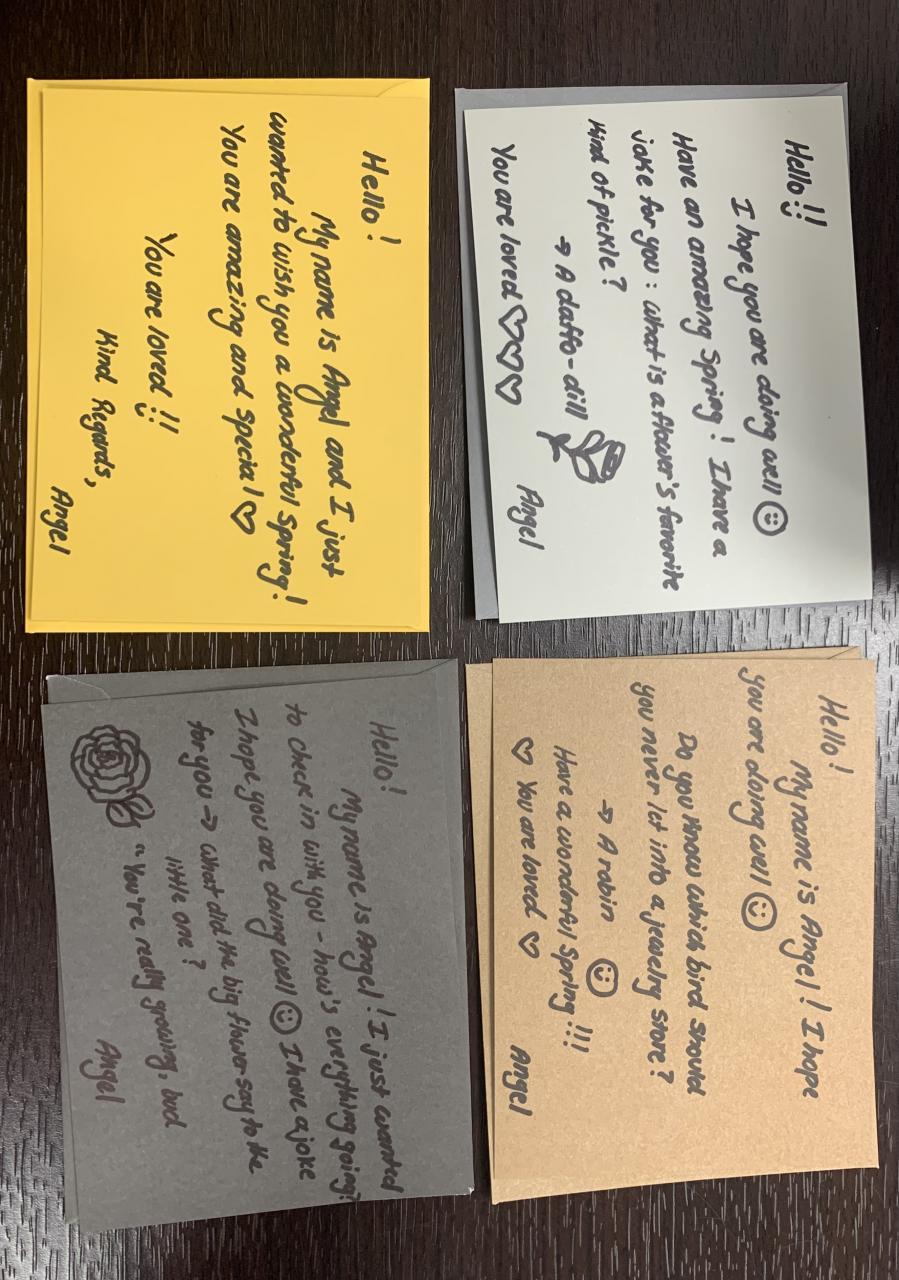 Hello!!
I hope you are doing well
Have an amazing Spring! I have a
joke for you: what is a flower's favorite
kind of pickle?
⇒ A daffo-dill
You are loved ♡♡♡
Angel
Hello!
My name is Angel! I hope
you are doing well ☺
Do you know which bird should
you never let into a jewelry store?
⇒ A robin ☺
Have a wonderful Spring!!!
♡ You are loved ♡
Angel
Hello!
My name is Angel and I just
wanted to wish you a wonderful Spring!
You are amazing and special ♡
You are loved!!
Kind Regards,
Angel
Hello!
My name is Angel! I just wanted
to check in with you - how's everything going?
I hope you are doing well ☺ I have a joke
for you ⇒ what did the big flower say to the
little one?
"You're really growing, bud
Angel